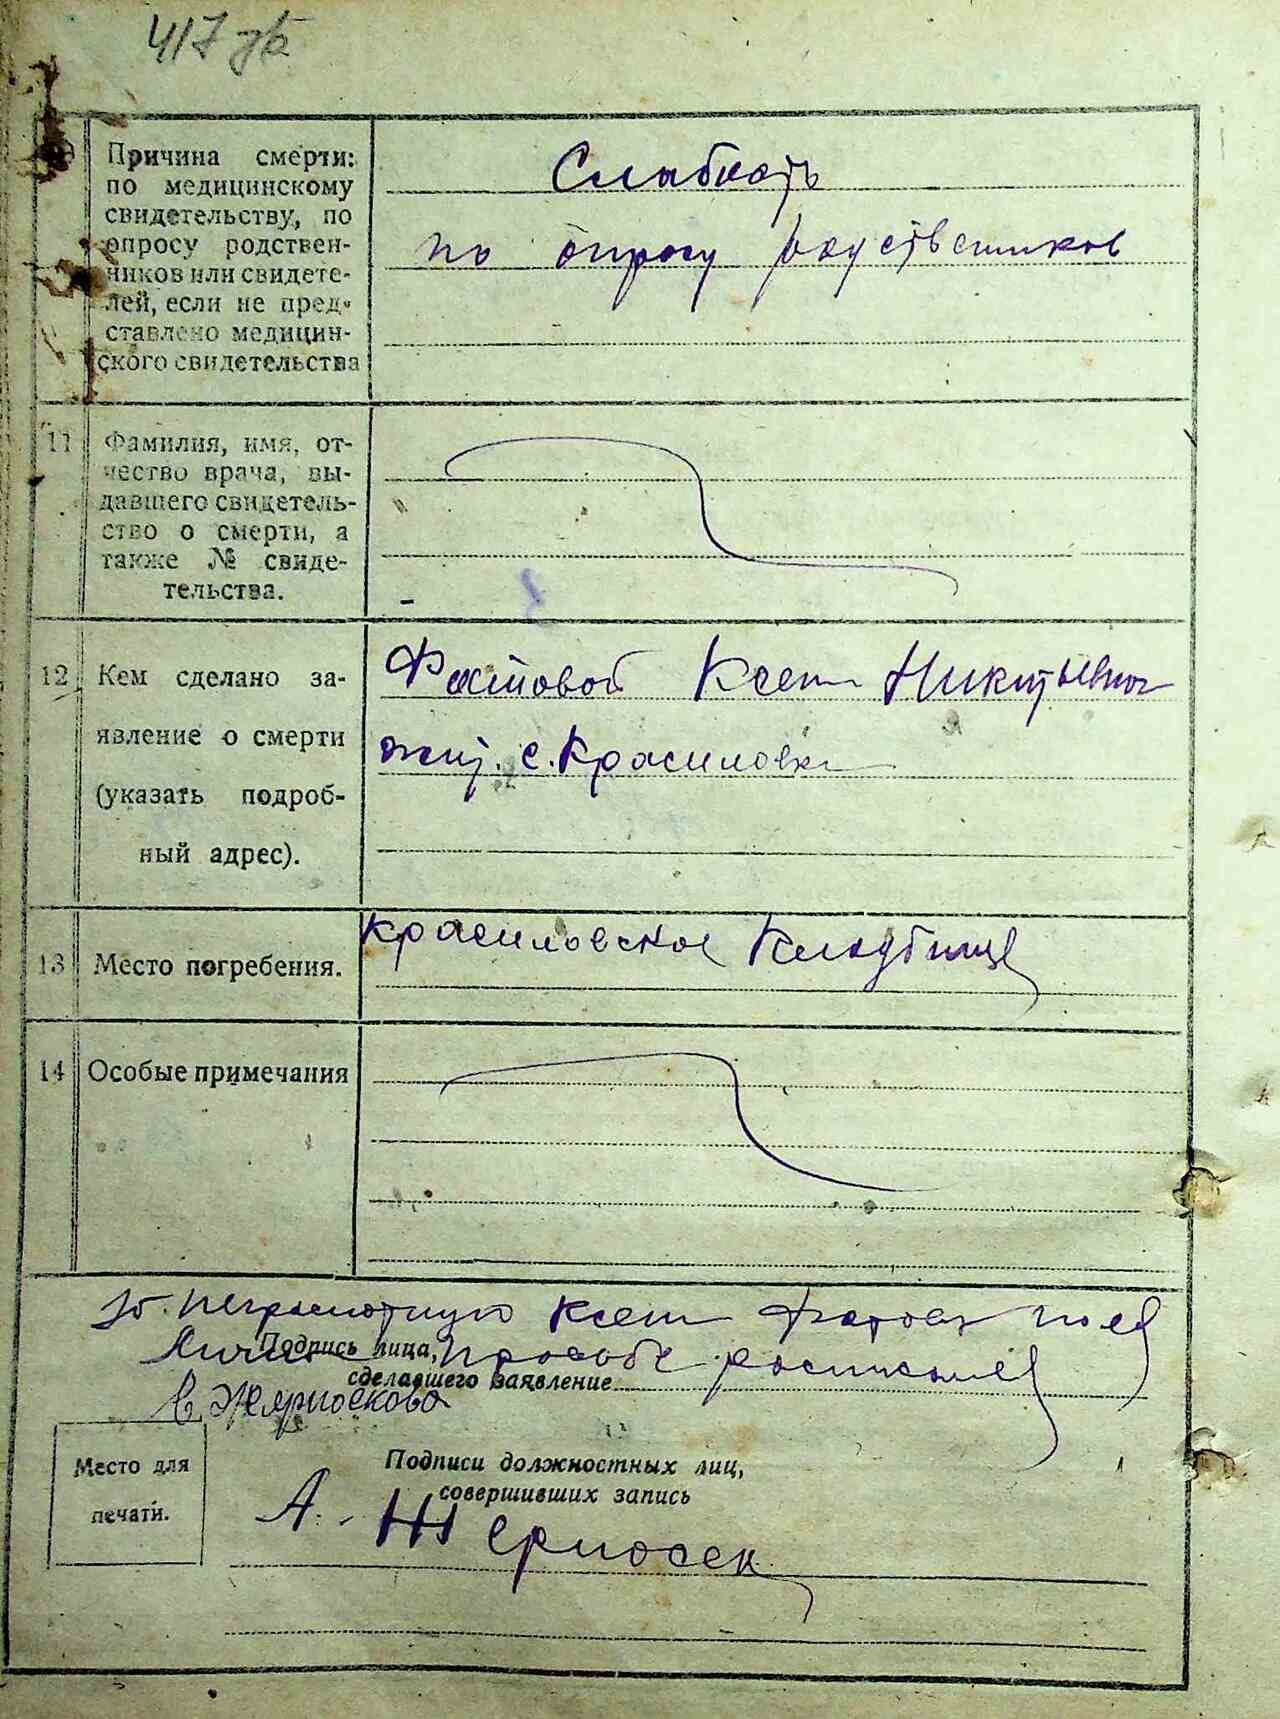 417 зв
Причина смерти:
по медицинскому
свидетельству, по
опросу родствен-
ников или свидете-
лей, если не пред-
ставлено медицин-
ского свидетельства
Слабость
по опросу родствеников
11
Фамилия, имя, от-
чество врача, вы-
давшего свидетель-
ство о смерти, а
также № свиде-
тельства.
12
Кем сделано за-
явление о смерти
(указать подроб-
ный адрес).
Фастовой Ксен Никитьевной
жит. с. Красиловка
13
Место погребения.
Красиловское Кладбище
14
Особые примечания
За Неграмотную Ксен
Подпись лица,
сделавшего заявление
Личной просьбе
Место для
печати.
Подписи должностных лиц,
совершивших запись
А. Жерносек